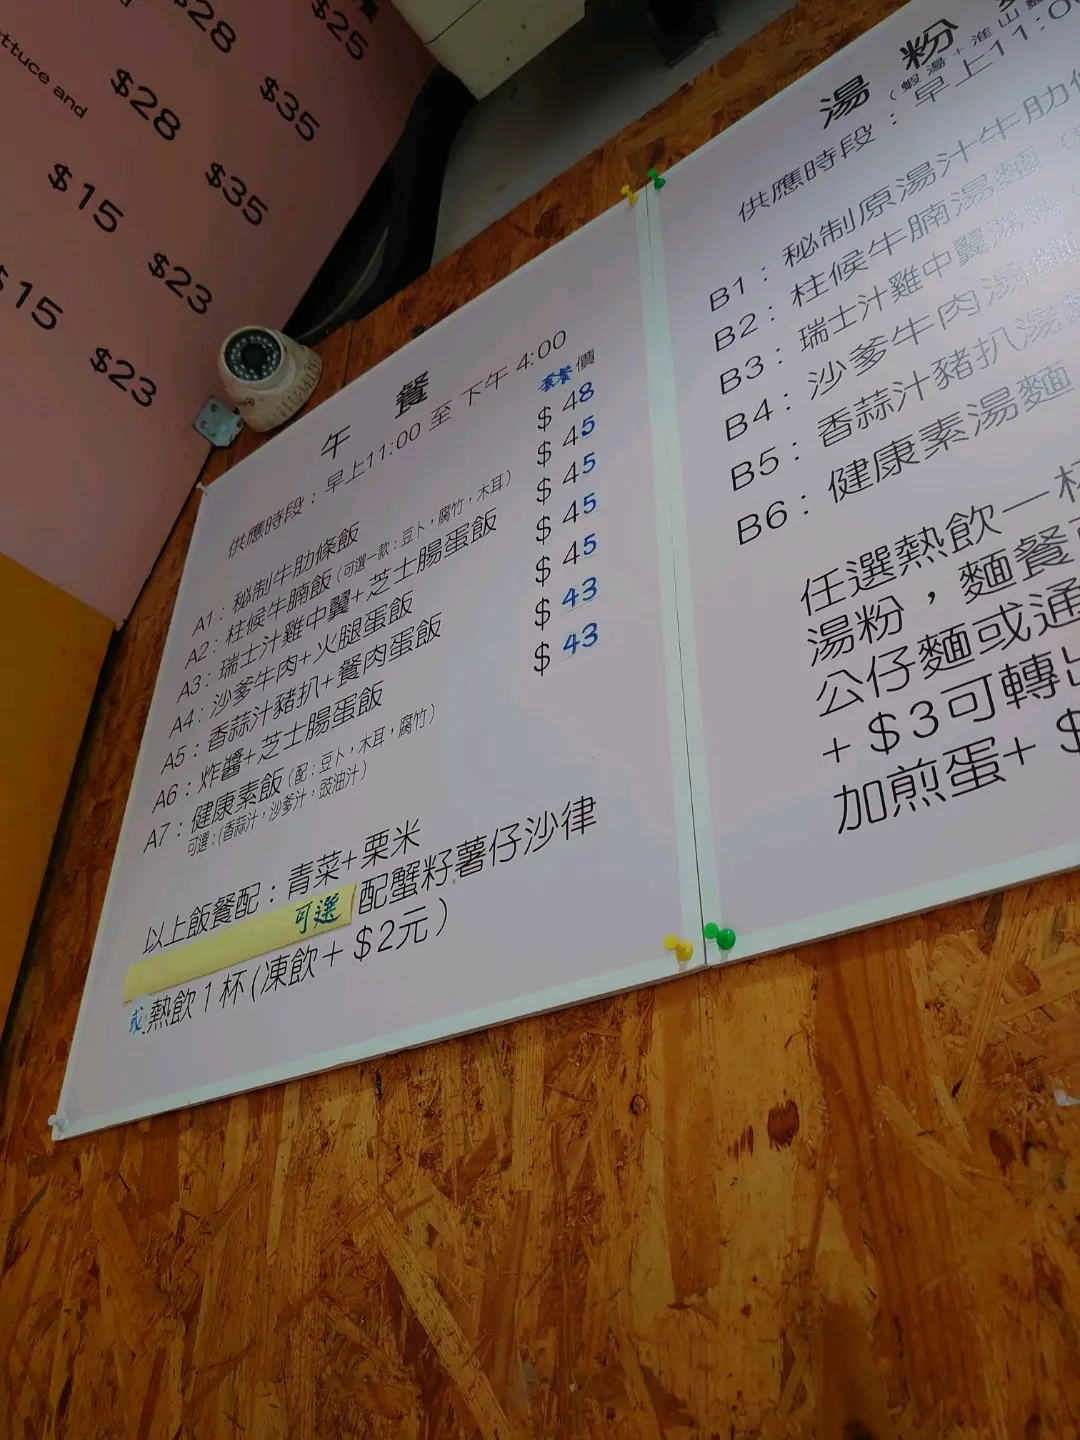 ettuce and
$28
$25
$28
$35
$15
$35
$15
$23
$23
午餐
供應時段：早上11:00 至 下午 4:00
套餐價
A1：秘制牛肋條飯 $48
A2：柱候牛腩飯(可選一款：豆卜，腐竹，木耳) $45
A3：瑞士汁雞中翼+芝士腸蛋飯 $45
A4：沙爹牛肉+火腿蛋飯 $45
A5：香蒜汁豬扒+餐肉蛋飯 $45
A6：炸醬+芝士腸蛋飯 $43
A7：健康素飯(配：豆卜，木耳，腐竹) $43
可選：(香蒜汁，沙爹汁，豉油汁)
以上飯餐配：青菜+栗米
可選 配蟹籽薯仔沙律
或 熱飲1杯(凍飲+$2元)
湯粉
供應時段：早上11:0
B1：秘制原湯汁牛肋
B2：柱候牛腩湯麵
B3：瑞士汁雞中翼湯
B4：沙爹牛肉湯
B5：香蒜汁豬扒湯
B6：健康素湯麵
任選熱飲一杯
湯粉，麵餐
公仔麵或通
+$3可轉
加煎蛋+$